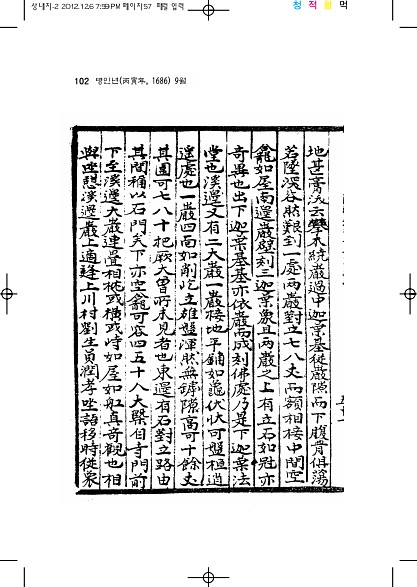 상내지-2 2012.12.6 7:59 PM 페이지57 패컴 입력
청 적 황 먹
102 병인년(丙寅年, 1686) 9월
地甚膏沃云攀木統巖過中迦葉基從巖隙而下腹背俱蕩
若墜溪谷賎艱到一處兩巖對立七八丈而額相接中間空
龕如屋南邊巖壁刻三迦葉象且兩巖之上有立石如冠亦
奇異也出下迦葉基基亦依巖而成刻佛處乃是下迦葉法
堂也溪邊又有二大巖一巖接地平鋪如龜伏狀可盤桓逍
遙處也一巖四面如削屹立雄盤渾然無罅隙高可十餘丈
其圍可七八十把厥大曾所未見者也東邊有石對立路由
其間稱以石門天下亦空龕可容四五十人大槩自寺門前
下至溪邊大巖連疊相挑或橫或峙如屋如舡真奇觀也相
與坐憩溪邊巖上適逢上川村劉生員潤孝坐語移時從衆